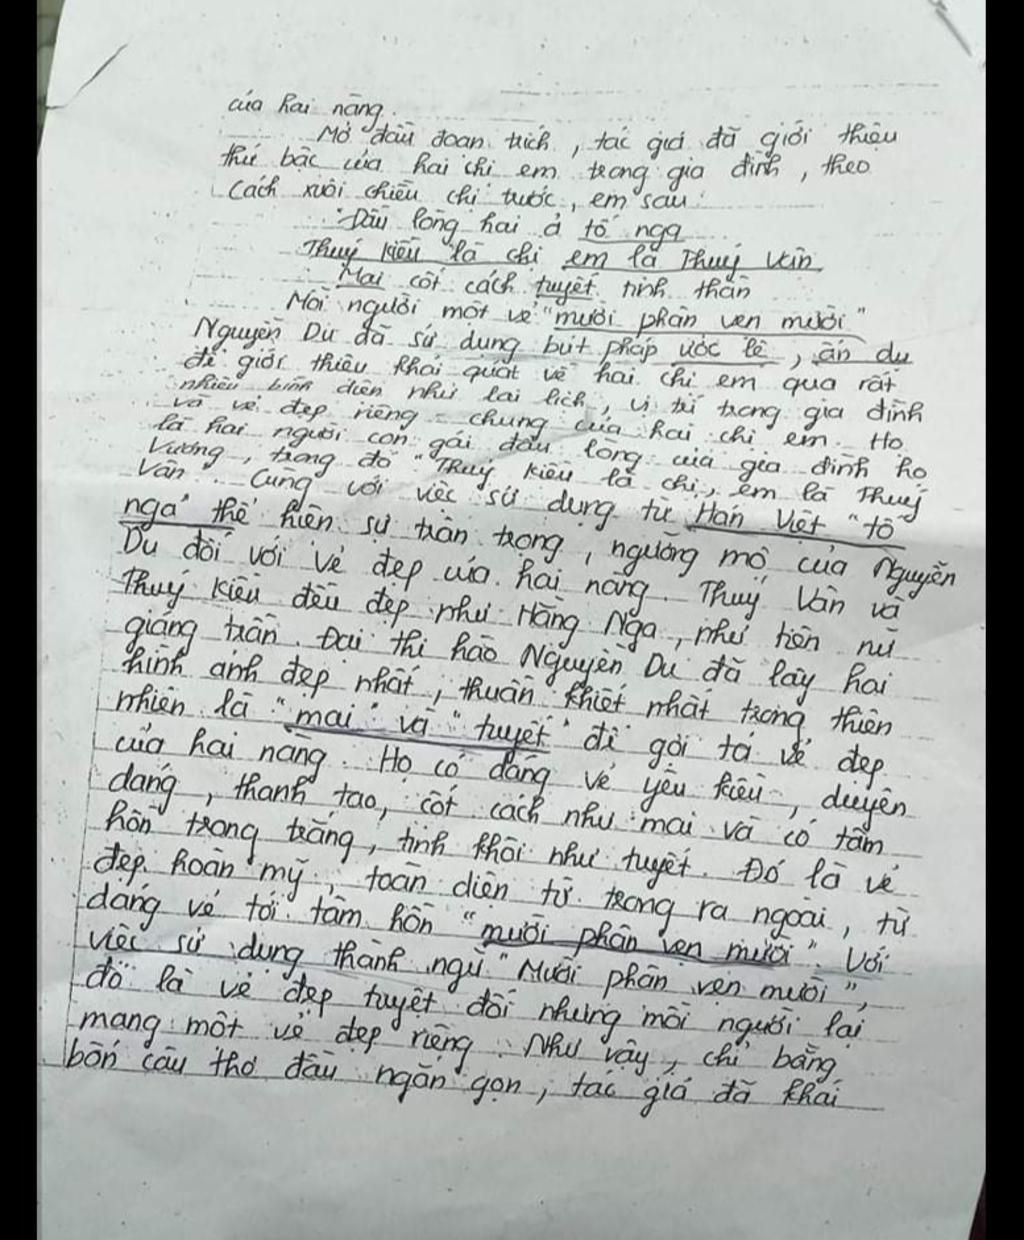 của hai nàng.
Mở đầu đoạn trích, tác giả đã giới thiệu
thứ bậc của hai chị em trong gia đình, theo
Cách xuôi chiều chị trước, em sau:
"Đầu lòng hai ả tố nga
Thuý Kiều là chị em là Thuý Vân
Mai cốt cách tuyết tinh thần
Mỗi người một vẻ "mười phân vẹn mười"
Nguyễn Du đã sử dụng bút pháp ước lệ, ẩn dụ
để giới thiệu khái quát về hai chị em qua rất
nhiều bình diện như lai lịch, vị trí trong gia đình
và vẻ đẹp riêng - chung của hai chị em. Họ
là hai người con gái đầu lòng của gia đình họ
Vương, trong đó "Thuý Kiều là chị, em là Thuý
Vân". Cùng với việc sử dụng từ Hán Việt "tố
nga" thể hiện sự trân trọng, ngưỡng mộ của Nguyễn
Du đối với vẻ đẹp của hai nàng. Thuý Vân và
Thuý Kiều đều đẹp như Hằng Nga, như tiên nữ
giáng trần. Đại thi hào Nguyễn Du đã lấy hai
hình ảnh đẹp nhất, thuần khiết nhất trong thiên
nhiên là "mai" và "tuyết" để gợi tả vẻ đẹp
của hai nàng. Họ có dáng vẻ yêu kiều, duyên
dáng, thanh tao, cốt cách như mai và có tâm
hồn trong trắng, tinh khôi như tuyết. Đó là vẻ
đẹp hoàn mỹ, toàn diện từ trong ra ngoài, từ
dáng vẻ tới tâm hồn "mười phân vẹn mười". Với
việc sử dụng thành ngữ "Mười phân vẹn mười",
đó là vẻ đẹp tuyệt đối nhưng mỗi người lại
mang một vẻ đẹp riêng. Như vậy, chỉ bằng
bốn câu thơ đầu ngắn gọn, tác giả đã khái